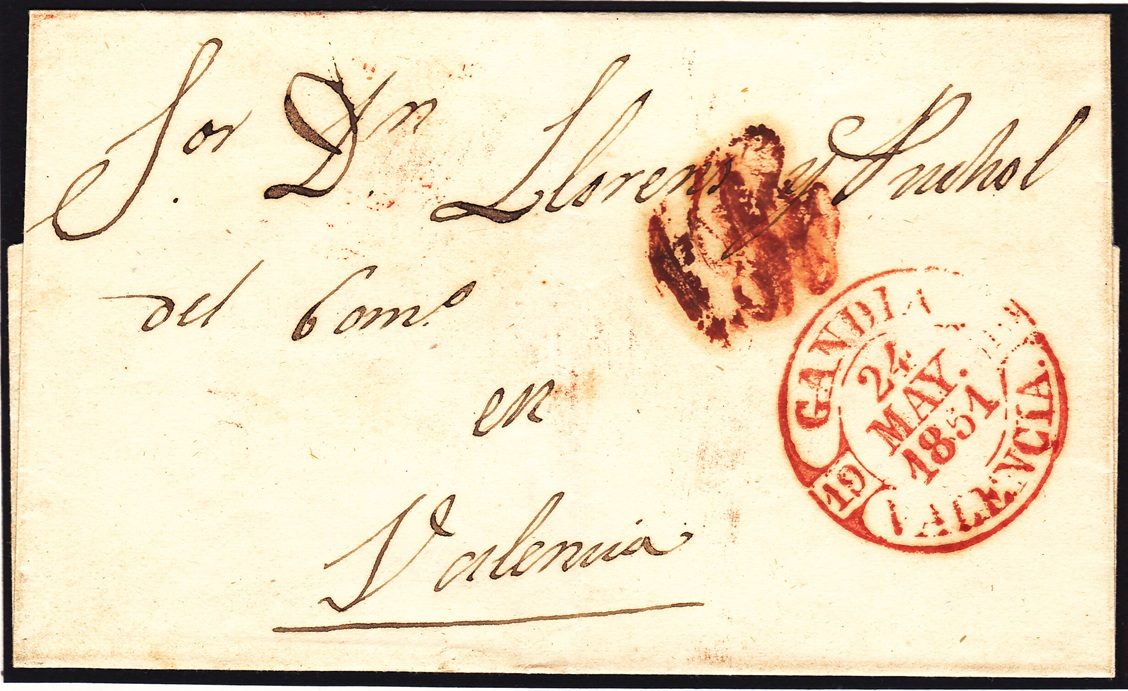 Sor Dn. Llorens y Puchol
del Comº
en
Valencia
GANDIA
24
MAY.
1851
19
VALENCIA.